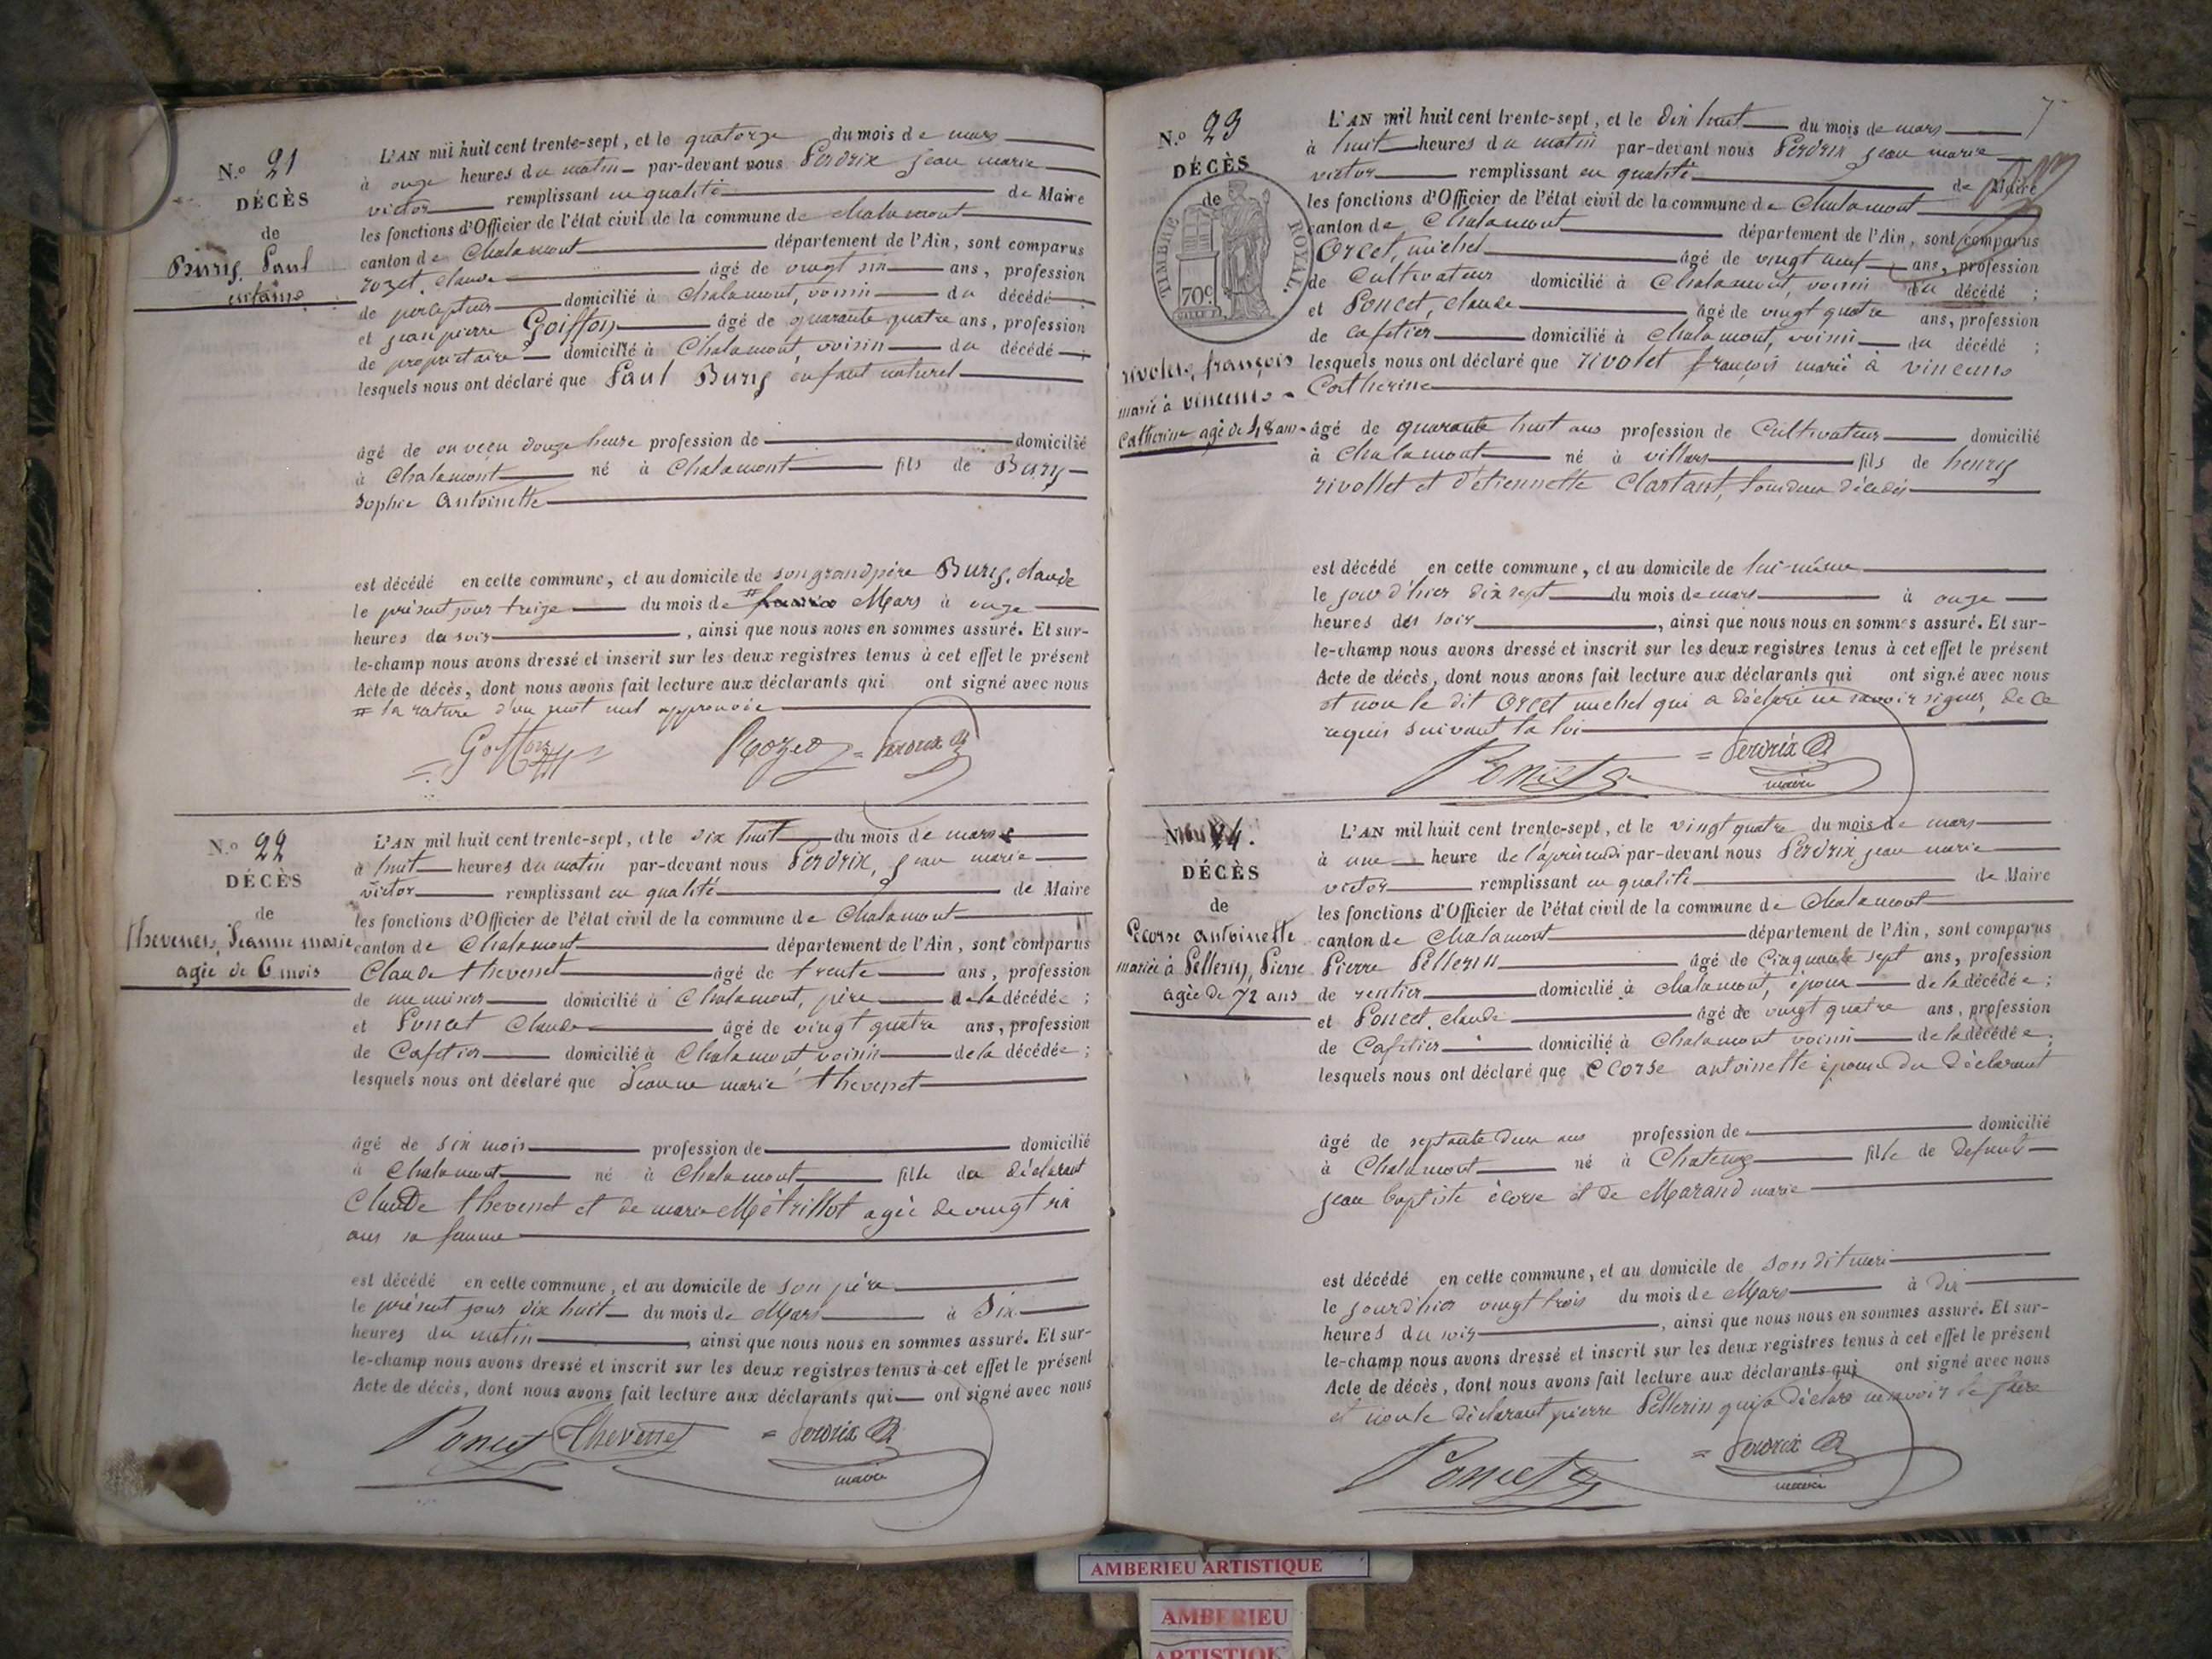 N.o 21
DÉCÈS
de
Burig, Paul
enfans
L'AN mil huit cent trente-sept, et le quatorze du mois de mars
à onze heures du matin par-devant nous Perdrix jean marie
victor remplissant en qualité de Maire
les fonctions d'Officier de l'état civil de la commune de chalamont
canton de Chalamont département de l'Ain, sont comparus
rozet, claude âgé de vingt six ans, profession
de percepteur domicilié à Chalamont, voisin du décédé ;
et jean pierre Goiffon âgé de quarante quatre ans, profession
de propriétaire domicilié à Chalamont, voisin du décédé ;
lesquels nous ont déclaré que Paul Burig enfant naturel
âgé de on veçu douze heure profession de domicilié
à Chalamont né à Chalamont fils de Burig
Sophie Antoinette
est décédé en cette commune, et au domicile de son grand père Burig, claude
le présent jour treize du mois de # Mars à onze
heures du soir , ainsi que nous nous en sommes assuré. Et sur-
le-champ nous avons dressé et inscrit sur les deux registres tenus à cet effet le présent
Acte de décès, dont nous avons fait lecture aux déclarants qui ont signé avec nous
# la rature d'un mot nul approuvée
Goiffon Rozet Perdrix
N.o 22
DÉCÈS
de
thevenet, Jeanne marie
agée de 6 mois
L'AN mil huit cent trente-sept, et le dix huit du mois de mars
à huit heures du matin par-devant nous Perdrix, jean marie
victor remplissant en qualité de Maire
les fonctions d'Officier de l'état civil de la commune de Chalamont
canton de Chalamont département de l'Ain, sont comparus
Claude thevenet âgé de trente ans, profession
de menuisier domicilié à Chalamont, père de la décédée ;
et Poncet Claude âgé de vingt quatre ans, profession
de Cafetier domicilié à Chalamont, voisin de la décédée ;
lesquels nous ont déclaré que Jeanne marie thevenet
âgé de six mois profession de domicilié
à Chalamont né à Chalamont fille du déclarant
Claude thevenet et de marie Métrillot agée de vingt six
ans sa femme
est décédé en cette commune, et au domicile de son père
le présent jour dix huit du mois de Mars à Six
heures du matin , ainsi que nous nous en sommes assuré. Et sur-
le-champ nous avons dressé et inscrit sur les deux registres tenus à cet effet le présent
Acte de décès, dont nous avons fait lecture aux déclarants qui ont signé avec nous
Poncet Thevenet Perdrix
maire
7
N.o 23
DÉCÈS
de
TIMBRE ROYAL.
70c
rivolet, françois
marié à vincent
Catherine, agé de 48 ans
L'AN mil huit cent trente-sept, et le dix huit du mois de mars
à huit heures du matin par-devant nous Perdrix jean marie
victor remplissant en qualité de Maire
les fonctions d'Officier de l'état civil de la commune de Chalamont
canton de Chalamont département de l'Ain, sont comparus
Orcet, michel âgé de vingt neuf ans, profession
de Cultivateur domicilié à Chalamont, voisin du décédé ;
et Poncet, claude âgé de vingt quatre ans, profession
de cafetier domicilié à Chalamont, voisin du décédé ;
lesquels nous ont déclaré que rivolet françois marié à vincent
Catherine
âgé de quarante huit ans profession de Cultivateur domicilié
à Chalamont né à villars fils de henry
rivollet et d'étiennette Clartant, tous deux décédés
est décédé en cette commune, et au domicile de lui-même
le jour d'hier dix sept du mois de mars à onze
heures du soir , ainsi que nous nous en sommes assuré. Et sur-
le-champ nous avons dressé et inscrit sur les deux registres tenus à cet effet le présent
Acte de décès, dont nous avons fait lecture aux déclarants qui ont signé avec nous
et non le dit Orcet michel qui a déclaré ne savoir signer, de ce
requis suivant la loi
Poncet Perdrix
maire
N 24.
DÉCÈS
de
Ecorse antoinette
mariée à Pellerin, Pierre
agée de 72 ans
L'AN mil huit cent trente-sept, et le vingt quatre du mois de mars
à une heure de l'après midi par-devant nous Perdrix jean marie
victor remplissant en qualité de Maire
les fonctions d'Officier de l'état civil de la commune de Chalamont
canton de Chalamont département de l'Ain, sont comparus
Pierre Pellerin âgé de Cinquante sept ans, profession
de rentier domicilié à Chalamont, époux de la décédée ;
et Poncet, claude âgé de vingt quatre ans, profession
de Cafetier domicilié à Chalamont voisin de la décédée ;
lesquels nous ont déclaré que Ecorse antoinette épouse du déclarant
âgé de septante deux ans profession de domicilié
à Chalamont né à Chatenay fille de defunts
jean baptiste écorse et de Marand marie
est décédé en cette commune, et au domicile de son dit mari
le jour d'hier vingt trois du mois de Mars à dix
heures du soir , ainsi que nous nous en sommes assuré. Et sur-
le-champ nous avons dressé et inscrit sur les deux registres tenus à cet effet le présent
Acte de décès, dont nous avons fait lecture aux déclarants qui ont signé avec nous
et non le déclarant pierre Pellerin qui a déclaré ne savoir le faire
Poncet Perdrix
maire
AMBERIEU ARTISTIQUE
AMBERIEU
ARTISTIQUE